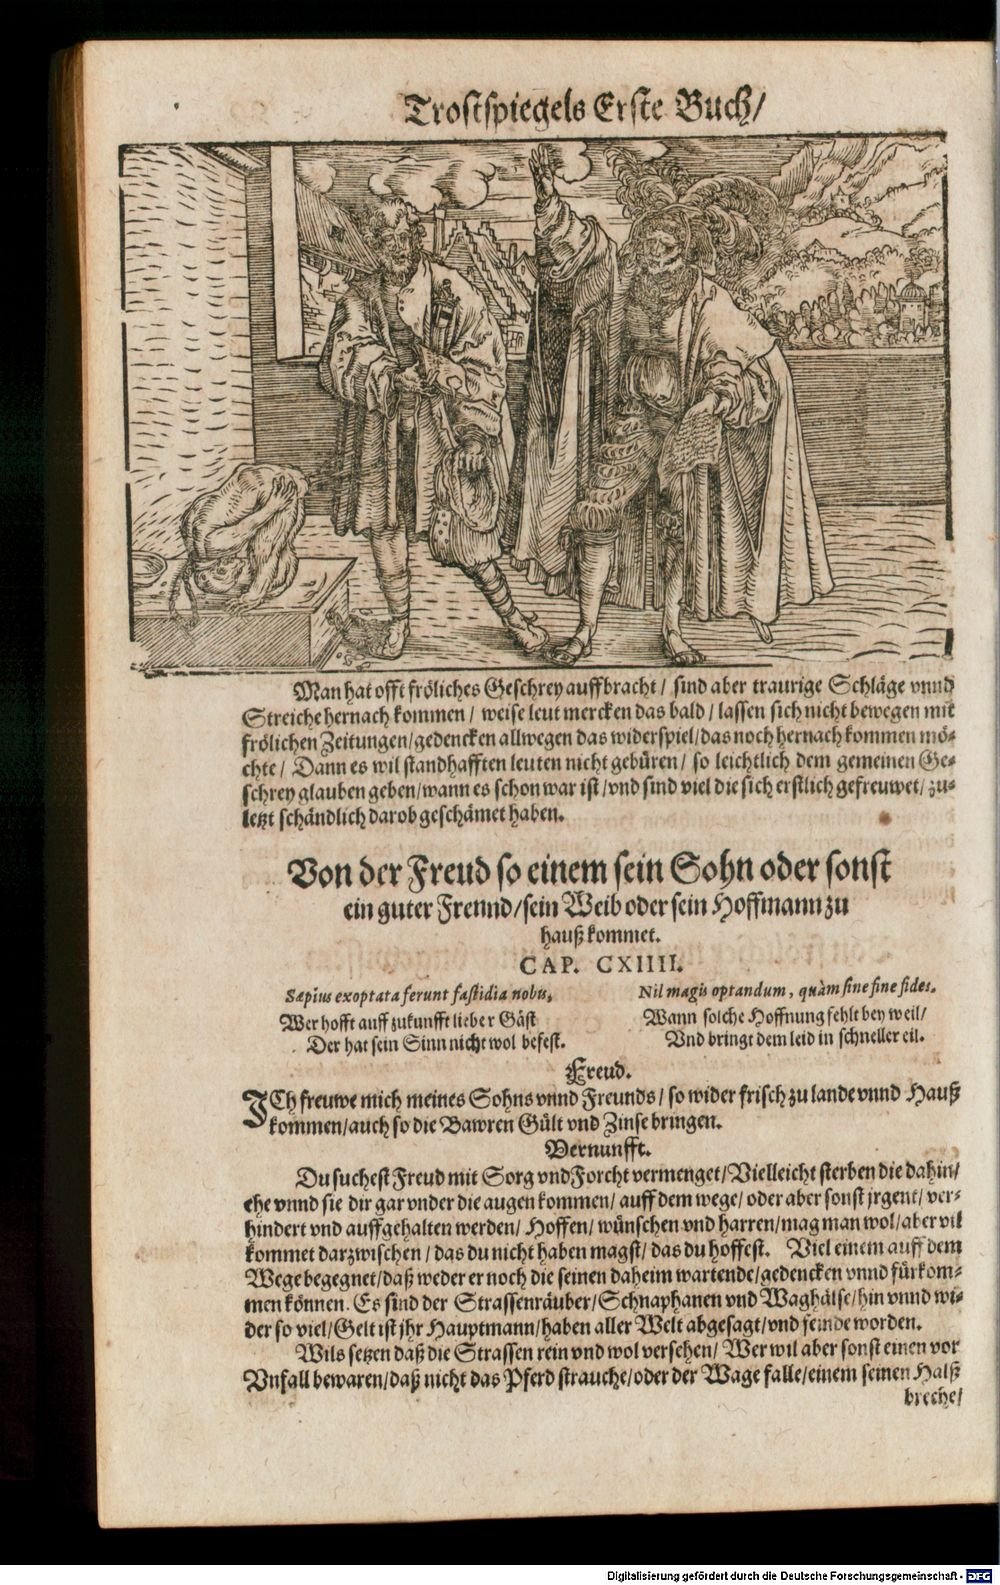 Trostspiegels Erste Buch/
Man hat offt fröliches Geschrey auffbracht/ sind aber traurige Schläge vnnd
Streiche hernach kommen/ weise leut mercken das bald/ lassen sich nicht bewegen mit
frölichen Zeitungen/gedencken allwegen das widerspiel/das noch hernach kommen mö-
chte/ Dann es wil standhafften leuten nicht gebüren/ so leichtlich dem gemeinen Ge-
schrey glauben geben/wann es schon war ist/vnd sind viel die sich erstlich gefreuwet/ zu-
letzt schändlich darob geschämet haben.
Von der Freud so einem sein Sohn oder sonst
ein guter Frennd/sein Weib oder sein Hoffmann zu
hauß kommet.
CAP. CXIIII.
Sæpius exoptata ferunt fastidia nobis,
Nil magis optandum, quàm sine fine fides.
Wer hofft auff zukunfft lieber Gäst
Der hat sein Sinn nicht wol befest.
Wann solche Hoffnung fehlt bey weil/
Vnd bringt dem leid in schneller eil.
Freud.
ICh freuwe mich meines Sohns vnnd Freunds/ so wider frisch zu lande vnnd Hauß
kommen/auch so die Bawren Gült vnd Zinse bringen.
Vernunfft.
Du suchest Freud mit Sorg vnd Forcht vermenget/Vielleicht sterben die dahin/
ehe vnnd sie dir gar vnder die augen kommen/ auff dem wege/ oder aber sonst jrgent/ ver-
hindert vnd auffgehalten werden/ Hoffen/ wünschen vnd harren/mag man wol/aber vil
kommet darzwischen/ das du nicht haben magst/ das du hoffest. Viel einem auff dem
Wege begegnet/daß weder er noch die seinen daheim wartende/gedencken vnnd fürkom-
men können. Es sind der Strassenräuber/Schnaphanen vnd Waghälse/hin vnnd wi-
der so viel/Gelt ist jhr Hauptmann/haben aller Welt abgesagt/vnd feinde worden.
Wils setzen daß die Strassen rein vnd wol versehen/ Wer wil aber sonst einen vor
Vnfall bewaren/daß nicht das Pferd strauche/oder der Wage falle/einem seinen Halß
breche/
Digitalisierung gefördert durch die Deutsche Forschungsgemeinschaft - DFG